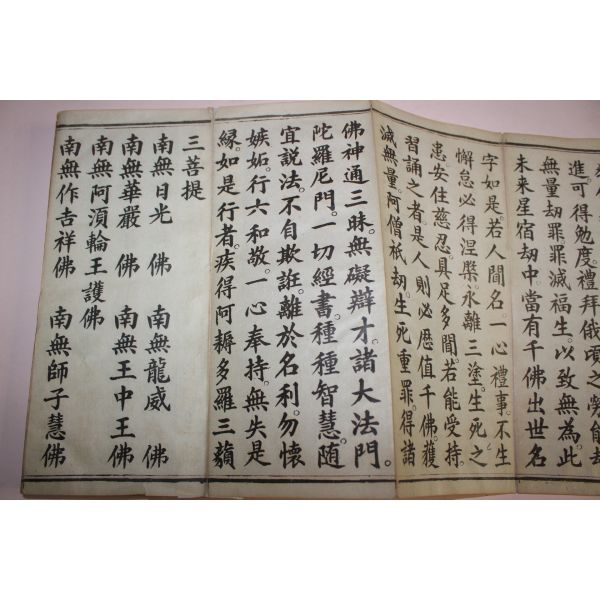 進可得勉度。禮拜俄頃之勞能却
無量劫罪。罪滅福生。以致無為。此
未来星宿劫中。當有千佛出世名
字如是若人聞名。一心禮事。不生
懈怠必得涅槃。永離三塗。生死之
患安住慈忍具足多聞。若能受持。
習誦之者。是人則必歷值千佛。獲
滅無量。阿僧祇劫。生死重罪。得諸
佛神通三昧。無礙辯才。諸大法門。
陀羅尼門。一切經書。種種智慧。随
宜説法。不自欺誑。離於名利。勿懷
嫉妬。行六和敬。一心奉持。無失是
縁。如是行者。疾得阿耨多羅三藐
三菩提
南無日光 佛 南無龍威 佛
南無華嚴 佛 南無王中王佛
南無阿湏輪王護佛
南無作吉祥佛 南無師子慧佛